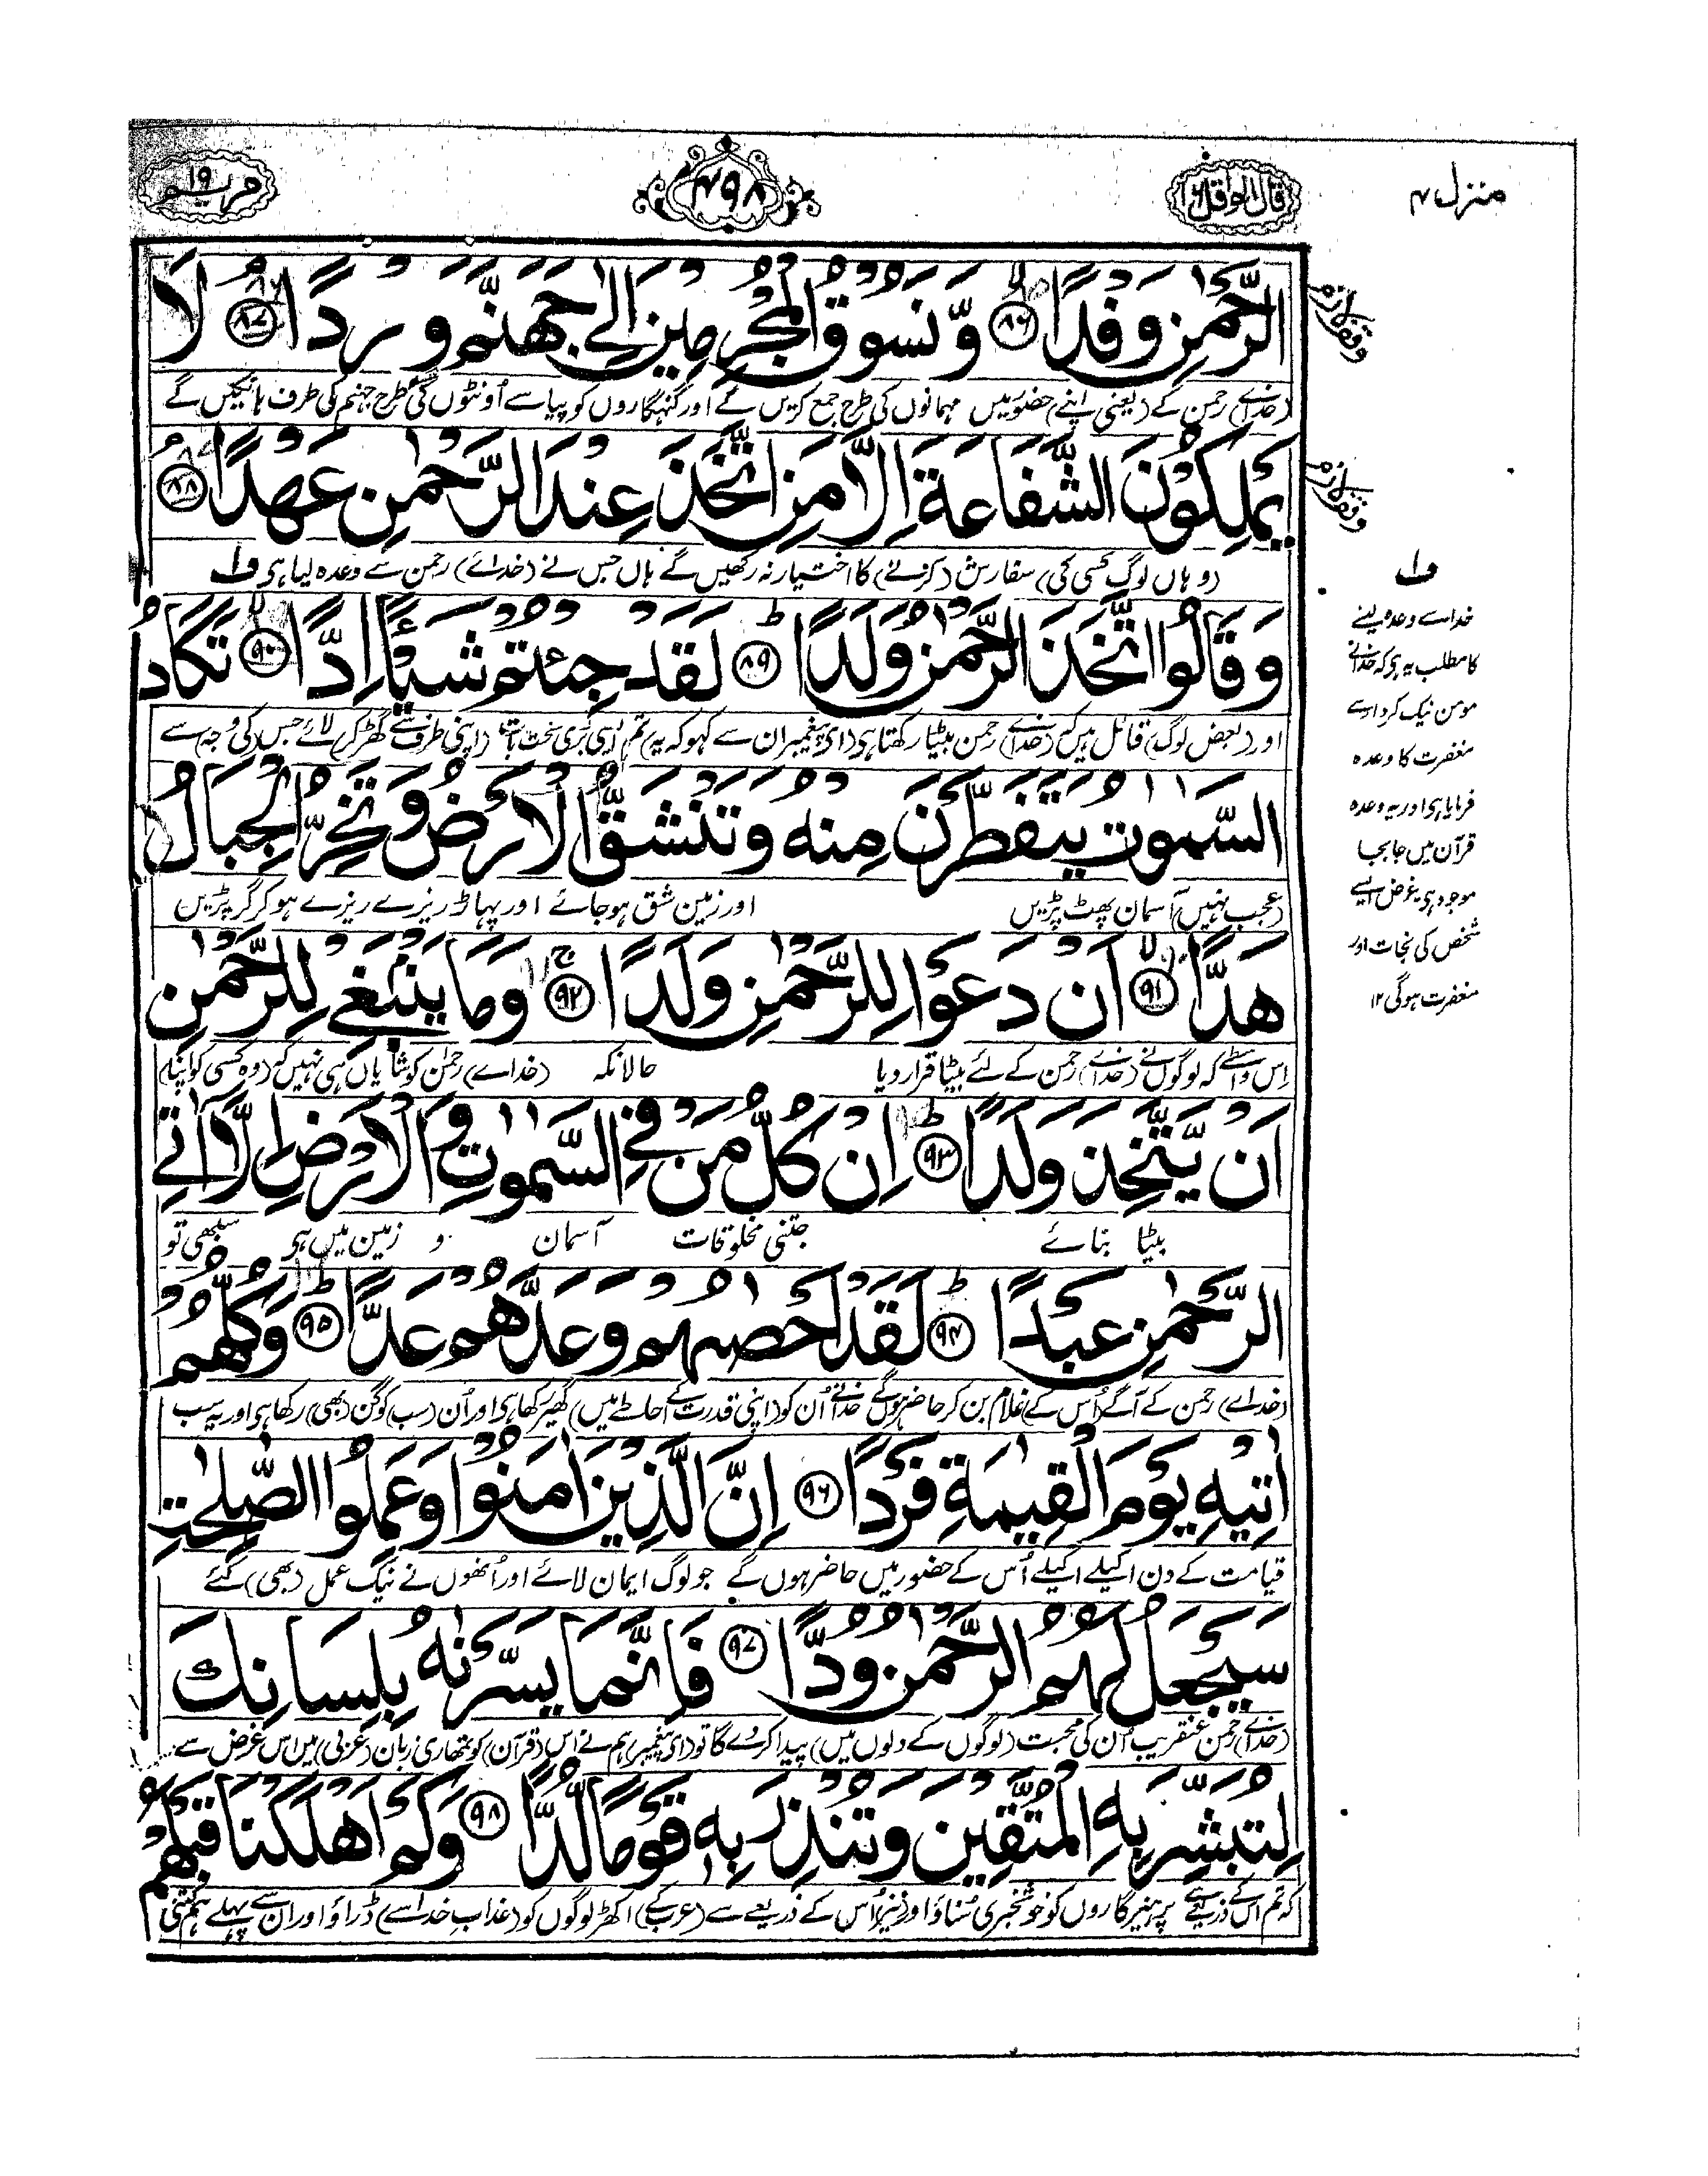 منزل ۴
قال الم ۱۶
۴۹۸
مریم ۱۹
الرَّحْمٰنِ وَفْدًا ﴿۸۶﴾ وَّنَسُوْقُ الْمُجْرِمِيْنَ اِلٰى جَهَنَّمَ وِرْدًا ﴿۸۷﴾ لَا
(خدائے) رحمن کے (یعنی اپنے) حضور میں مہمانوں کی طرح جمع کریں گے اور گنہگاروں کو پیاسے اُونٹوں کی طرح جہنم کی طرف ہانکیں گے
يَمْلِكُوْنَ الشَّفَاعَةَ اِلَّا مَنِ اتَّخَذَ عِنْدَ الرَّحْمٰنِ عَهْدًا ﴿۸۸﴾
(وہاں لوگ کسی کی) سفارش (کرنے) کا اختیار نہ رکھیں گے ہاں جس نے (خدائے) رحمن سے وعدہ لیا ہی ف۱
وَقَالُوا اتَّخَذَ الرَّحْمٰنُ وَلَدًا ﴿۸۹﴾ لَقَدْ جِئْتُمْ شَيْـًٔا اِدًّا ﴿۹۰﴾ تَكَادُ
اور (بعض لوگ) قائل ہیں کہ (خدائے) رحمن بیٹا رکھتا ہی (ای پیغمبر ان سے کہو کہ یہ) تم ایسی بُری سخت بات (اپنی طرف سے گھڑ کر) لائے جس کی وجہ سے
السَّمٰوٰتُ يَتَفَطَّرْنَ مِنْهُ وَتَنْشَقُّ الْاَرْضُ وَتَخِرُّ الْجِبَالُ
(عجب نہیں) آسمان پھٹ پڑیں اور زمین شق ہو جائے اور پہاڑ ریزے ریزے ہو کر گر پڑیں
هَدًّا ﴿۹۱﴾ اَنْ دَعَوْا لِلرَّحْمٰنِ وَلَدًا ﴿۹۲﴾ وَمَا يَنْۢبَغِىْ لِلرَّحْمٰنِ
اِس واسطے کہ لوگوں نے (خدائے) رحمن کے لئے بیٹا قرار دیا حالانکہ (خدائے) رحمٰن کو شایاں ہی نہیں کہ (وہ کسی کو اپنا)
اَنْ يَّتَّخِذَ وَلَدًا ﴿۹۳﴾ اِنْ كُلُّ مَنْ فِى السَّمٰوٰتِ وَالْاَرْضِ اِلَّاۤ اٰتِى
بیٹا بنائے جتنی مخلوقات آسمان و زمین میں ہی سبھی تو
الرَّحْمٰنِ عَبْدًا ﴿۹۴﴾ لَقَدْ اَحْصٰىهُمْ وَعَدَّهُمْ عَدًّا ﴿۹۵﴾ وَكُلُّهُمْ
(خدائے) رحمن کے آگے اُس کے غلام بن کر حاضر ہوں گے خدا نے اُن کو (اپنی قدرت کے احاطے میں) گھیر رکھا ہی اور اُن (سب) کو گن (بھی) رکھا ہی اور یہ سب
اٰتِيْهِ يَوْمَ الْقِيٰمَةِ فَرْدًا ﴿۹۶﴾ اِنَّ الَّذِيْنَ اٰمَنُوْا وَعَمِلُوا الصّٰلِحٰتِ
قیامت کے دن اکیلے اکیلے اُس کے حضور میں حاضر ہوں گے جو لوگ ایمان لائے اور اُنھوں نے نیک عمل (بھی) کئے
سَيَجْعَلُ لَهُمُ الرَّحْمٰنُ وُدًّا ﴿۹۷﴾ فَاِنَّمَا يَسَّرْنٰهُ بِلِسَانِكَ
(خدائے) رحمن عنقریب اُن کی محبت (لوگوں کے دلوں میں) پیدا کر دے گا تو (ای پیغمبر) ہم نے اس (قرآن) کو تمھاری زبان (عربی) میں اس غرض سے
لِتُبَشِّرَ بِهِ الْمُتَّقِيْنَ وَتُنْذِرَ بِهٖ قَوْمًا لُّدًّا ﴿۹۸﴾ وَكَمْ اَهْلَكْنَا قَبْلَهُمْ
کہ تم اس کے ذریعے سے پرہیزگاروں کو خوشخبری سُناؤ اور (نیز) اُس کے ذریعے سے (عرب کے) اکھڑ لوگوں کو (عذاب خدا سے) ڈراؤ اور ان سے پہلے ہم کتنی
وقف لازم
وقف لازم
ف۱
خدا سے وعدہ لینے
کا مطلب یہ ہی کہ خدا نے
مومن نیک کردار سے
مغفرت کا وعدہ
فرمایا ہی اور یہ وعدہ
قرآن میں جا بجا
موجود ہی غرض ایسے
شخص کی نجات اور
مغفرت ہو گی ۱۲